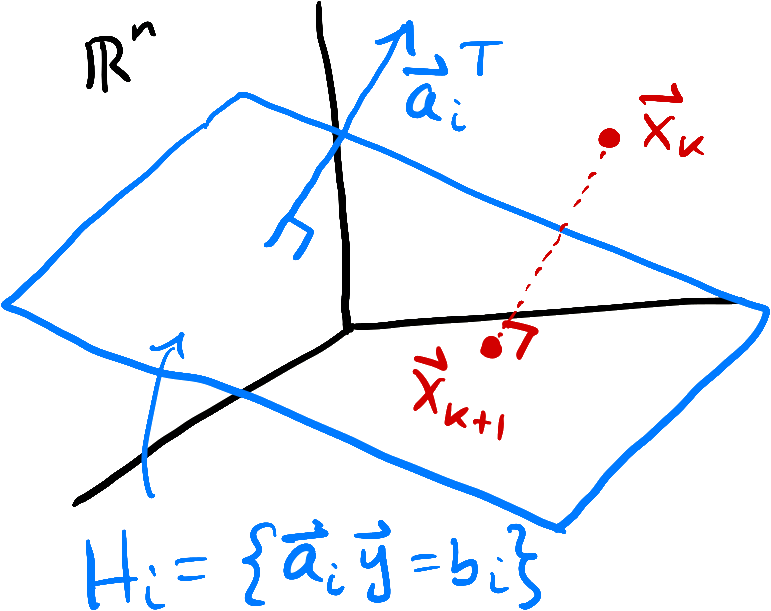 ℝⁿ
a⃗ᵢᵀ
x⃗ₖ
x⃗ₖ₊₁
Hᵢ = {a⃗ᵢ y⃗ = bᵢ}